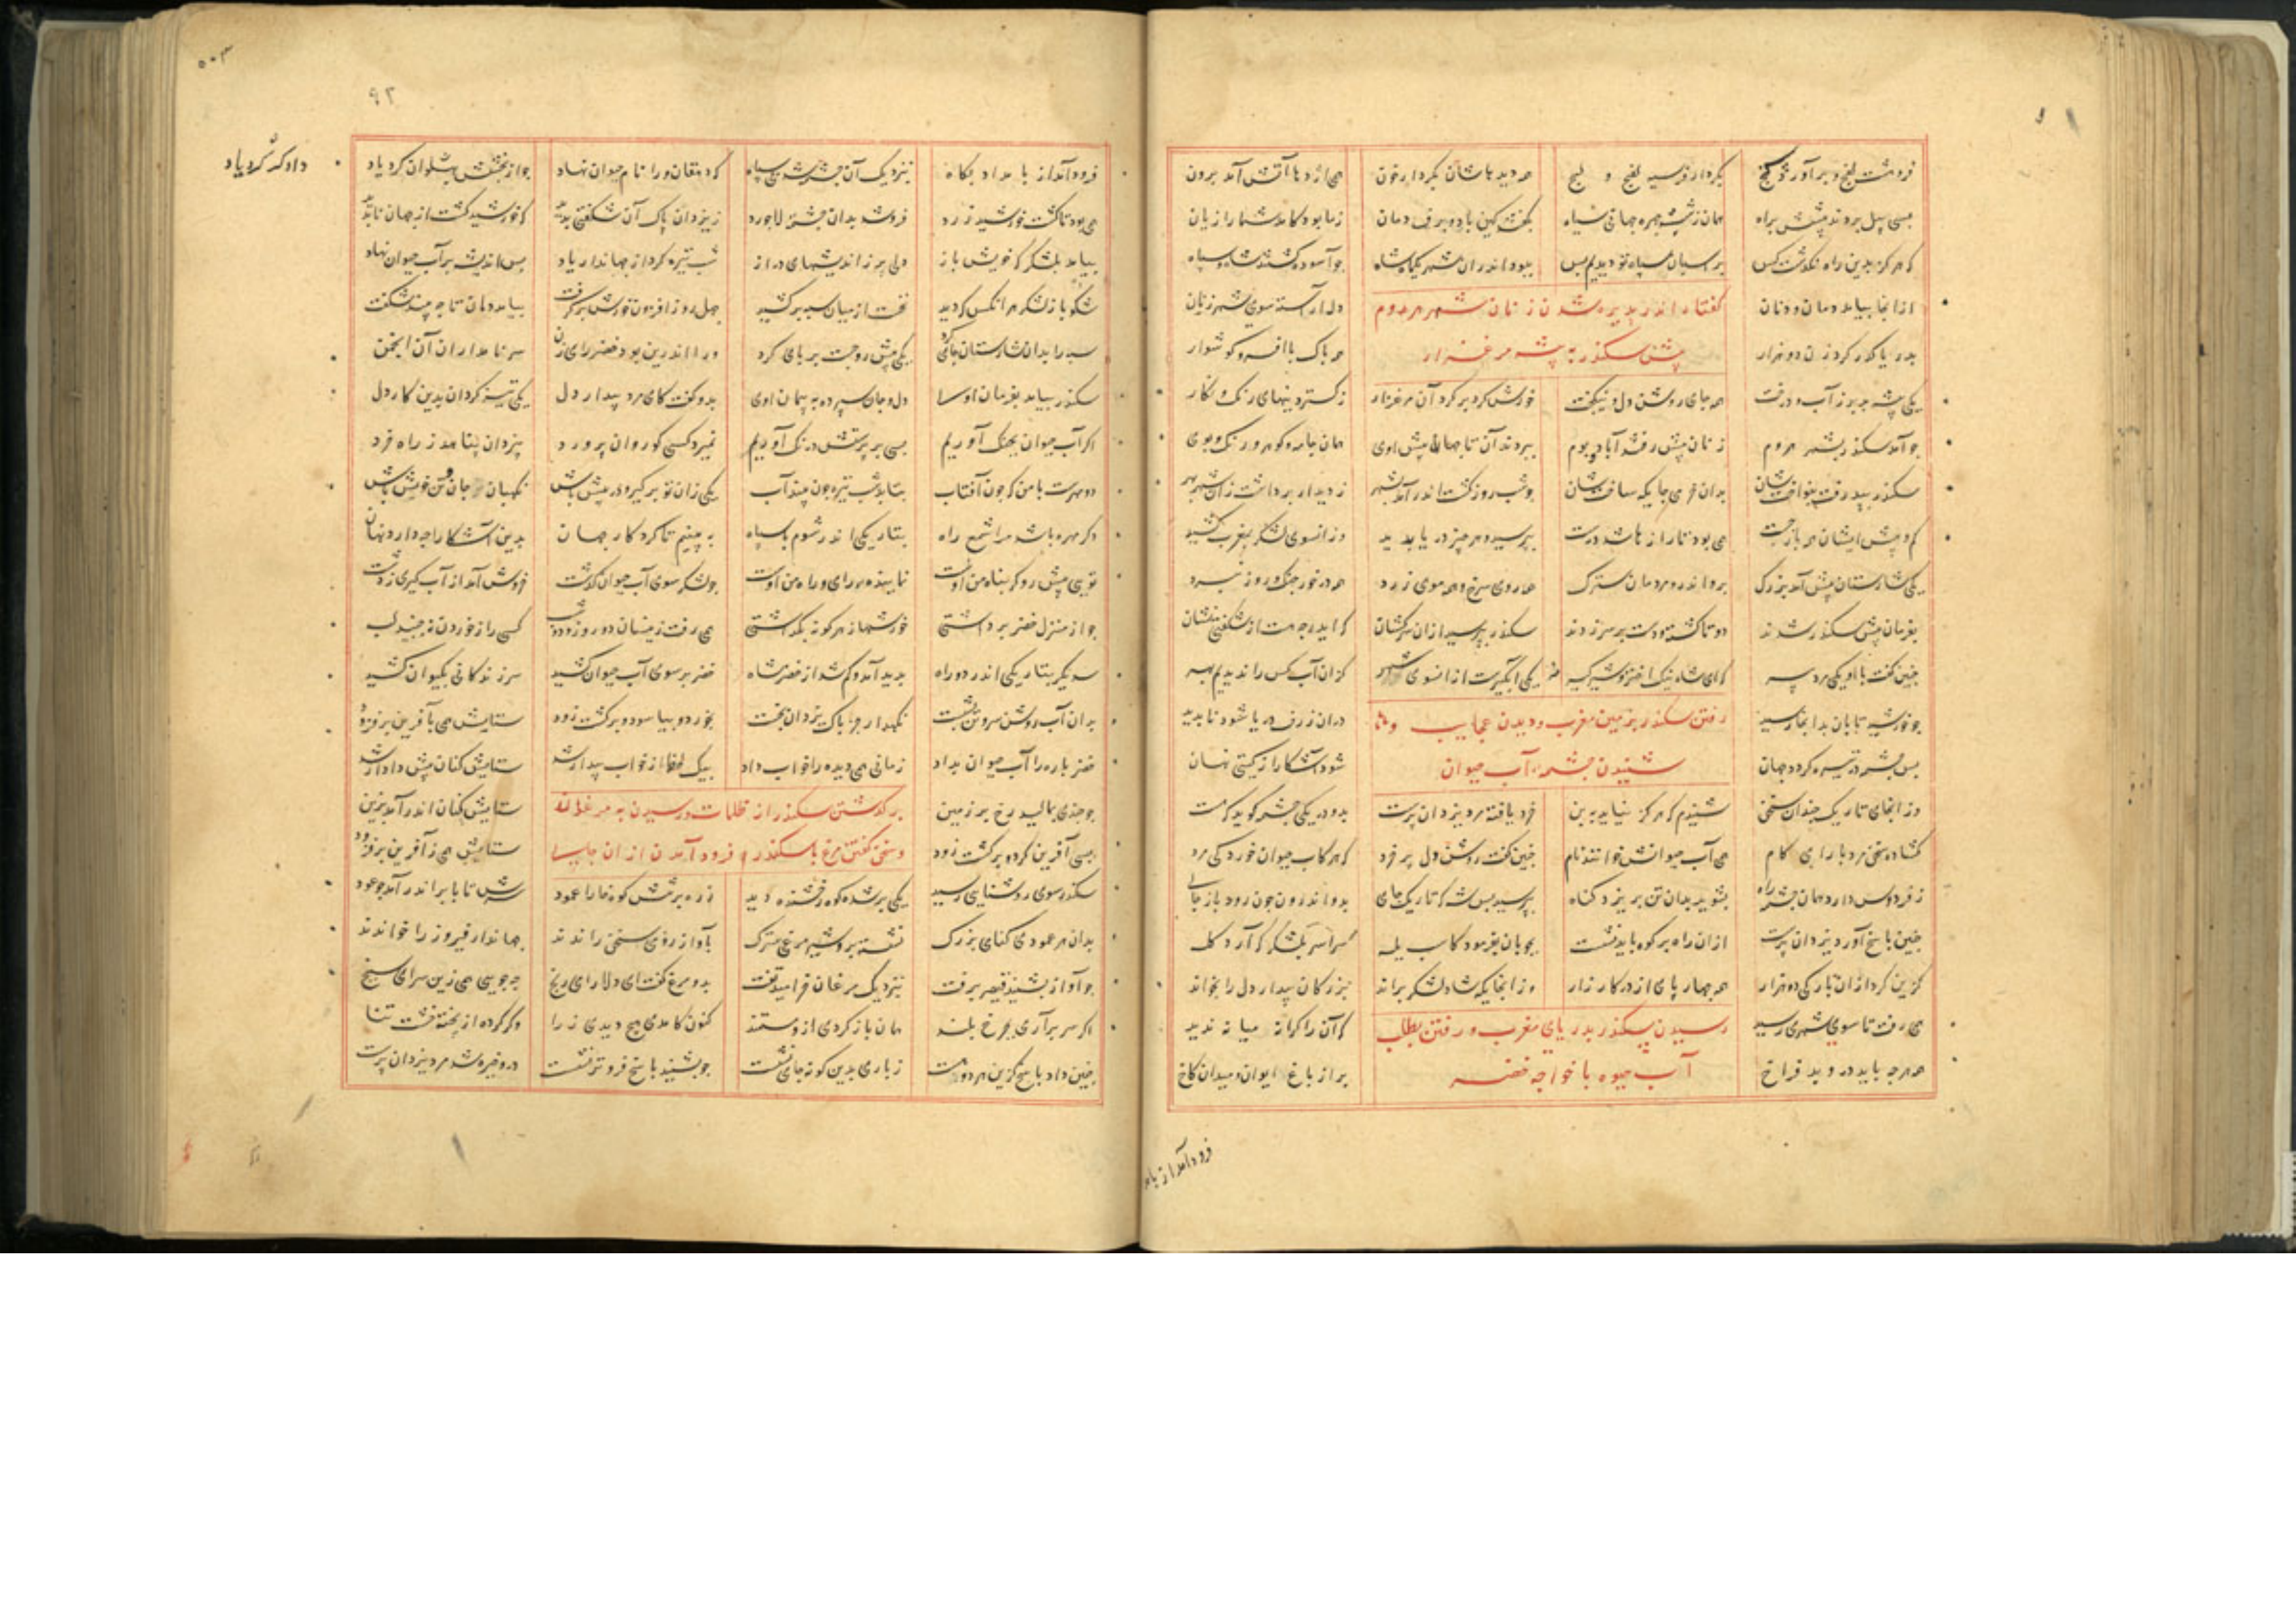 فروهشت لفج و برآورده کفج بکردار قیر سیه لفج و لفج همه دیدهاشان بکردار خون همی از دهان آتش آمد برون
بسی پیل بردند پیشش براه همان زشت چهره جهانی سیاه بگفتند کین باد و برف دمان ز ما بود کامد شما را زیان
که هرگز بدین راه نگذشت کس
ببود اندران شهر یکماه شاه چو آسوده گشتند شاه و سپاه
از آنجا بیامد دمان و دنان
گفتار اندر پذیره شدن زنان شهر هروم
دل آراسته سوی شهر زنان
بدریا گذر کرد زن دو هزار
پیش سکندر به پیشه مرغزار
همه پاک با افسر و گوشوار
یکی پیشه بد پر ز آب و درخت همه جای روشن دل و نیکبخت خورش گرد بر گرد آن مرغزار ز گستردنیهای رنگ و نگار
چو آمد سکندر بشهر هروم زنان پیش رفتند آباد بوم ببردند آن تاجها پیش اوی همان جامه و گوهر و رنگ و بوی
سکندر بپذیرفت بنواختشان بدان خرمی جایگه ساختشان چو شب روز گشت اندر آمد بشهر ز دیدار برداشت زان شهر بهر
کم و بیش ایشان همی بازجست همی بود تا رازها شد درست بپرسید هر چیز و دریا بدید وز انسوی لشکر بمغرب کشید
یکی شارستان پیش آمد بزرگ برو اندرو مردمان سترک همه روی سرخ و همه موی زرد همه درخور جنگ و روز نبرد
بفرمان پیش سکندر شدند دو تا گشته و دست بر سر زدند سکندر بپرسید از آن سرکشان که ایدر چه هست از شگفتی نشان
چنین گفت با او یکی مرد پیر که ای شاه نیک اختر و شیرگیر یکی آبگیرست از انسوی شهر کزان آب کس را ندیدیم بهر
چو خورشید تابان بدانجا رسید
رفتن سکندر بزمین مغرب و دیدن عجایب و
دران ژرف دریا شود ناپدید
پس چشمه در تیره گردد جهان
شنیدن چشمه آب حیوان
شود آشکارا ز گیتی نهان
وز انجای تاریک چندان سخن شنیدم که هرگز نیاید به بن خرد یافته مرد یزدان پرست بدو در یکی چشمه گوید که هست
گشاده سخن مرد با رای و کام همی آب حیوانش خواند بنام چنین گفت روشن دل پر خرد که هر کاب حیوان خورد کی مرد
ز فردوس دارد همان چشمه راه بشوید بدان تن بریزد گناه بپرسید پس شه که تاریک جای بدو اندرون چون رود بازجای
چنین پاسخ آورد یزدان پرست از آن راه بر کره باید نشست بچوبان بفرمود کاب یله سراسر بلشکر گه آرد گله
گزین کرد از آن بارگی ده هزار همه چهار پای از در کارزار وز انجایگه شاد لشکر براند بزرگان بیدار دل را بخواند
همی رفت تا سوی شهری رسید
رسیدن سکندر بدریای مغرب و رفتن بطلب
که آنرا کرانه میانه ندید
همه هرچه باید درو بد فراخ
آب حیوه با خواجه خضر
پر از باغ ایوان و میدان و کاخ
فرود آمد از بام
۹۲
فرود آمد از بامداد پگاه بنزدیک آن چشمه شد بی سپاه که دهقان ورا نام حیوان نهاد چو از بخشش پهلوان کرد یاد
دادگر کرد یاد
همی بود تا گشت خورشید زرد فروشد بدان چشمه لاجورد ز یزدان پاک آن شگفتی بدید که خورشید گشت از جهان ناپدید
بیامد بلشکر گه خویش باز دلی پر ز اندیشهای دراز شب تیره کرد از جهاندار یاد پس اندیشه بر آب حیوان نهاد
شکیبا ز لشکر هر انکس که دید نخست از میان سپه برکشید چهل روز افزون خورش برگرفت بیامد دمان تا چه بیند شگفت
سپه را بدان شارستان جای کرد یکی پیش رو جست بر پای کرد ورا اندرین بود خضر رای زن سر نامداران آن انجمن
سکندر بیامد بفرمان اوسا دل و جان سپرده به پیمان اوی بدو گفت کای مرد بیدار دل یکی تیز گردان بدین کار دل
اگر آب حیوان بچنگ آوریم بسی بر پرستش درنگ آوریم نمیرد کسی کو روان پرورد بیزدان پناهد ز راه خرد
دو مهرست با من که چون آفتاب بتابد شب تیره چون بیند آب یکی زان تو برگیر و در پیش باش نگهبان جان و تن خویش باش
دگر مهره باشد مرا شمع راه بتاریکی اندر شوم با سپاه به بینیم تا کردگار جهان بدین آشکارا چه دارد نهان
تویی پیش رو گر پناه من اوست نماینده رای و راه من اوست چو لشکر سوی آب حیوان گذشت خروش آمد از آب گیری ز دشت
چو از منزل خضر برداشتی خورشها ز هر گونه بگذاشتی همی رفت زینسان دو روز و دو شب کسی را ز خوردن نجنبید لب
سه دیگر بتاریکی اندر دو راه پدید آمد و گم شد از خضر شاه خضر بر سوی آب حیوان کشید سر زندگانی بکیوان کشید
بدان آب روشن سر و تن بشست نگهدار جز پاک یزدان نجست بخورد و بیاسود و برگشت زود ستایش همی بآفرین برفزود
خضر باره را آب حیوان بداد زمانی همی دیده را خواب داد بیک لحظه از خواب بیدار شد ستایش کنان پیش دادار شد
چو چندی بمالید رخ بر زمین
برگذشتن سکندر از ظلمات و رسیدن به مرغ
ستایش کنان اندر آمد بزین
بسی آفرین کرد و برگشت زود
و سخن گفتن مرغ با سکندر و فرود آمدن از ان جای
ستایش همی ز آفرین برفزود
سکندر سوی روشنایی رسید یکی برشده کوه رخشنده دید زده بر سرش کوه خارا عمود سرش تا بابر اندر آمد چو عود
بدان هر عمودی کنای بزرگ نشسته برو شیر مرغ سترگ بآواز رومی سخن راندند جهاندار فیروز را خواندند
چو آواز بشنید قیصر برفت بنزدیک مرغان خرامید تفت بدو مرغ گفت ای دلارای رنج چه جویی همی زین سرای سپنج
اگر سر برآری بچرخ بلند همان باز کردی ازو مستمند کنون کامدی هیچ دیدی زنا وگر کرده از پخته خشت تنا
چنین داد پاسخ کزین هر دو هست ز باری بدین گونه جای نشست چو بشنید پاسخ فروتر نشست درو خیره شد مرد یزدان پرست